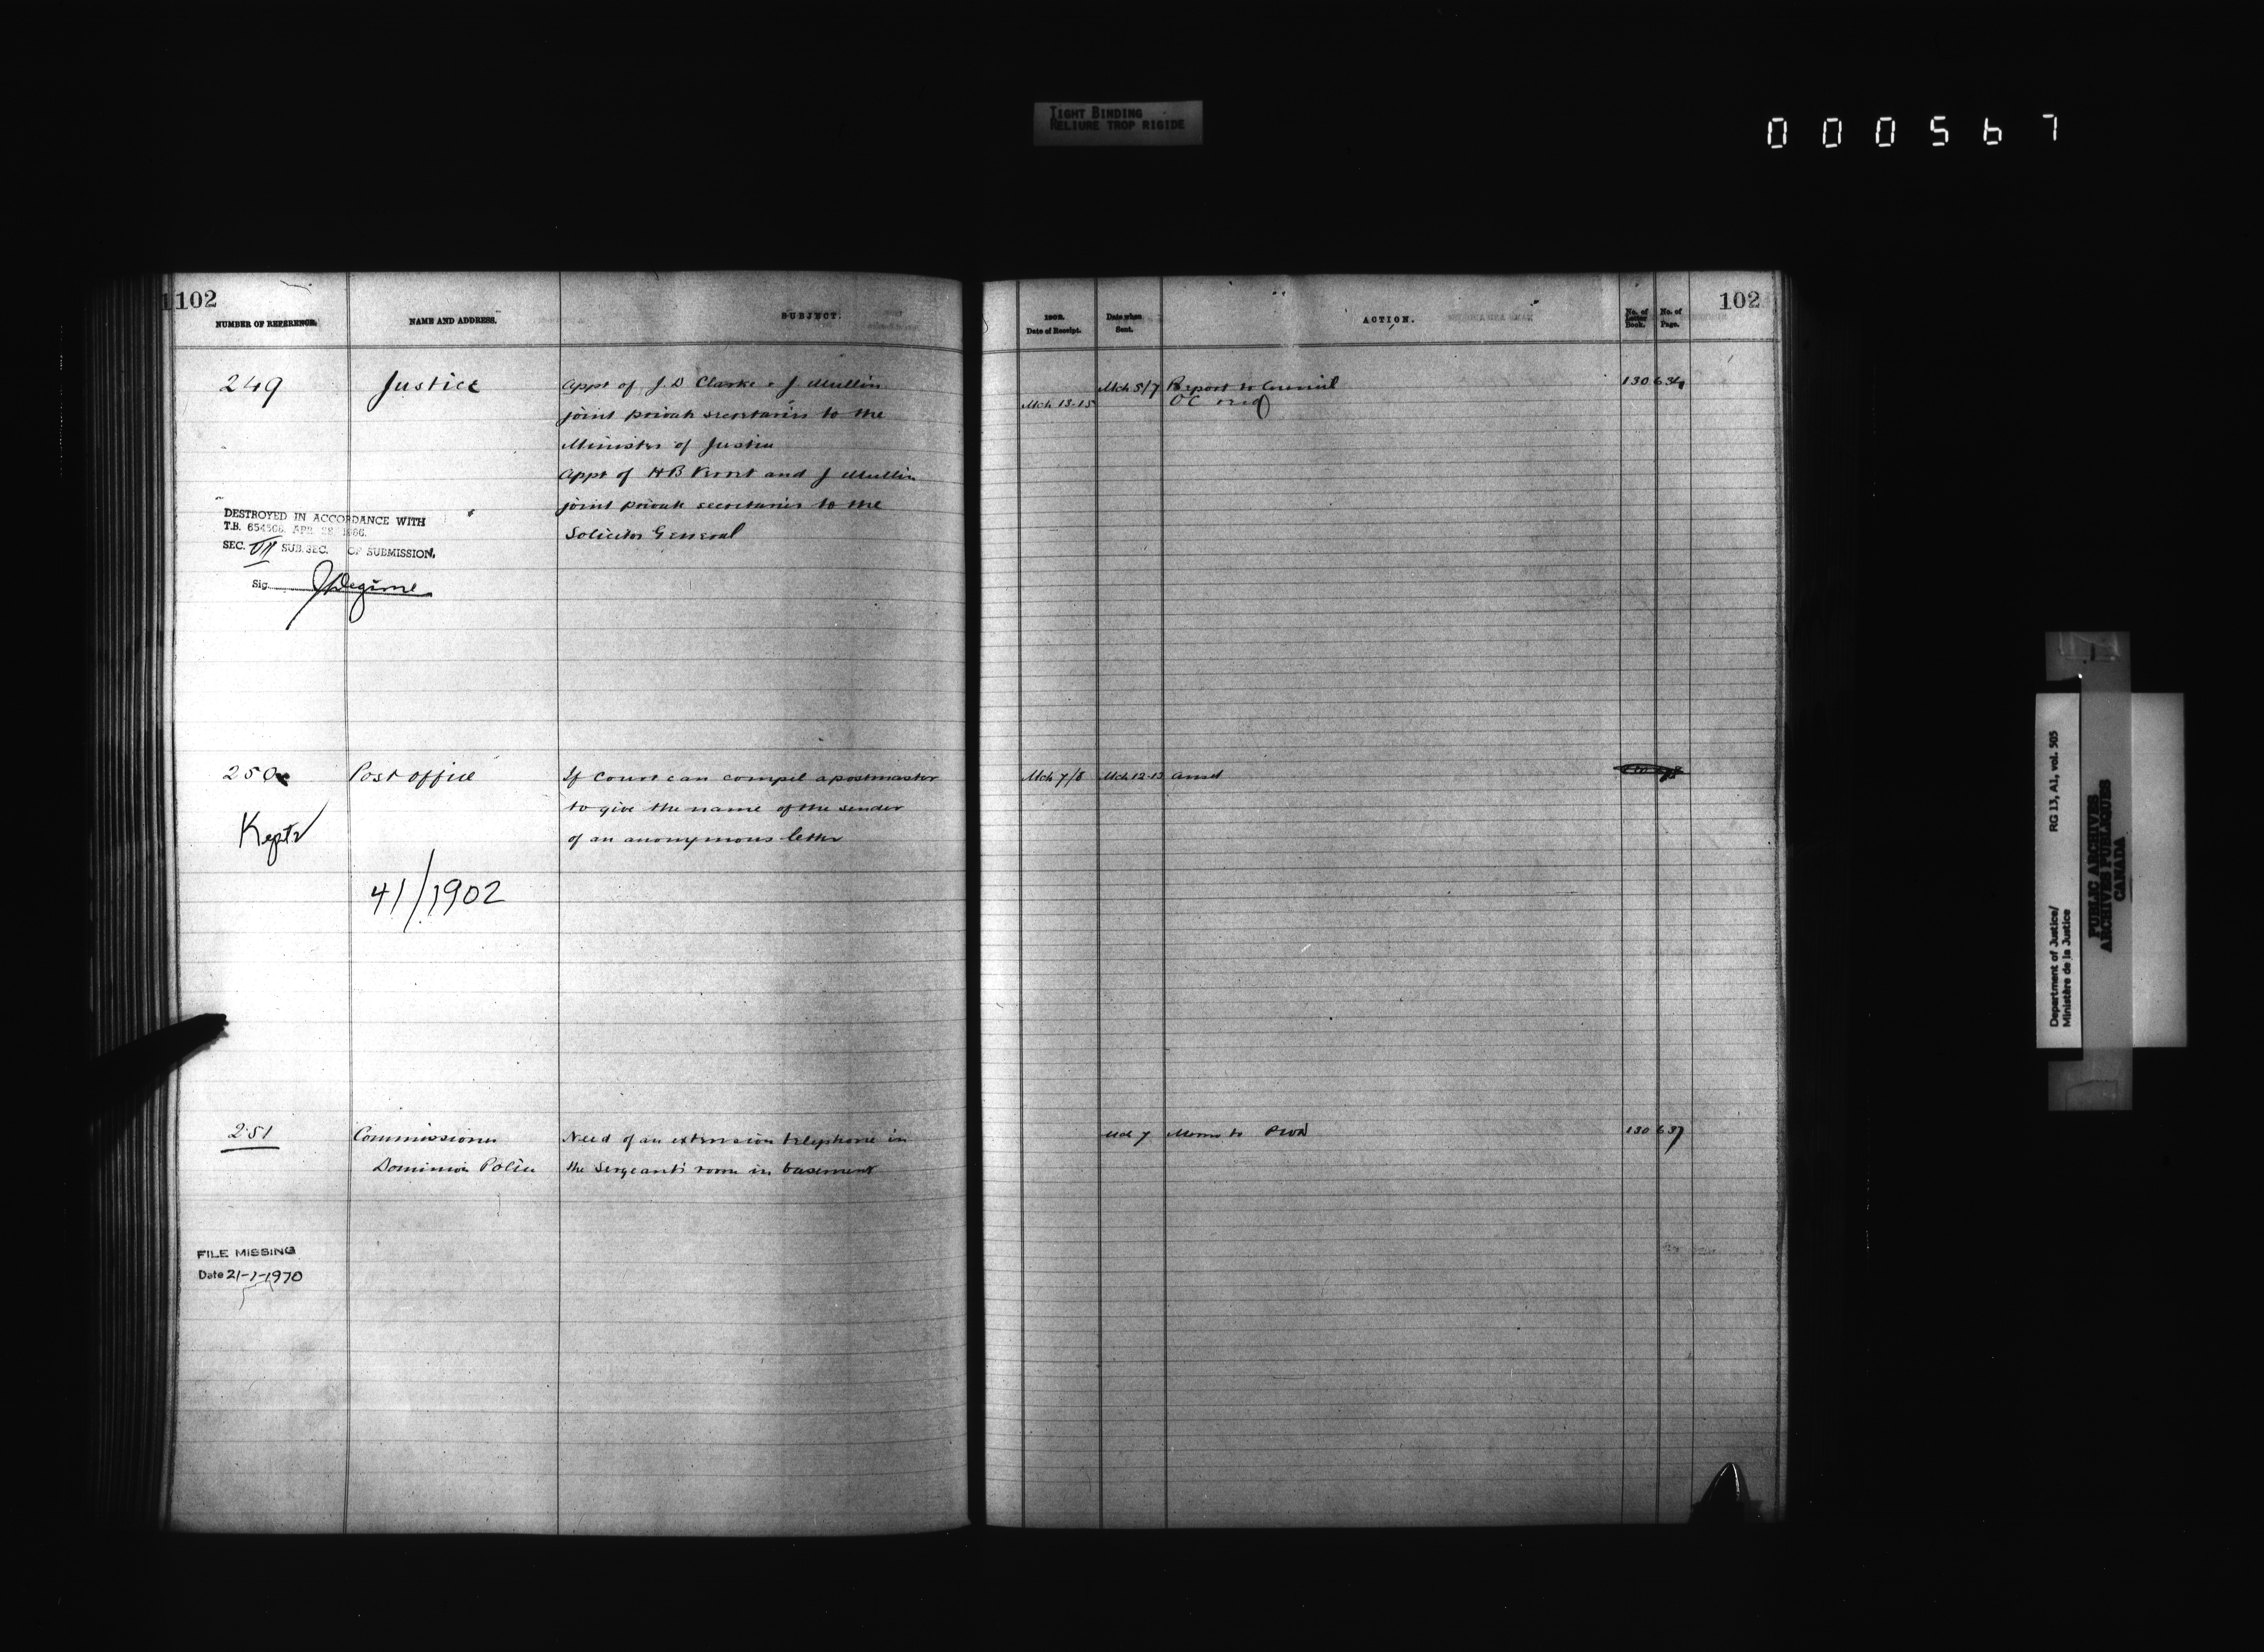 TIGHT BINDING
RELIURE TROP RIGIDE
000567
102
NUMBER OF REFERENCE.
NAME AND ADDRESS.
SUBJECT.
249
Justice
Appt of J. D Clarke & J Mullin
joint private secretaries to the
Minister of Justice
Appt of HB and J Mullin
joint private secretaries to the
Solicitor General
DESTROYED IN ACCORDANCE WITH
T.B. APR
SEC. VII SUB.SEC. OF SUBMISSION.
Sig.
250
Post office
If Court can compel a postmaster
to give the name of the sender
of an anonymous letter
Kept
41/1902
251
Commissioner
Dominion Police
Need of an extension telephone in
the Sergeant's room in basement
FILE MISSING
Date 21-1-1970
102
1902.
Date of Receipt.
Date when
Sent.
ACTION.
No. of
Letter
Book.
No. of
Page.
Mch 5/7 Report to Council 130 634
Mch 13-15 OC
Mch 7/8 Mch 12-13 ansd
Mch 7 Memo to PWD 130 637
Department of Justice/
Ministère de la Justice
RG 13, A1, vol. 505
PUBLIC ARCHIVES
ARCHIVES PUBLIQUES
CANADA